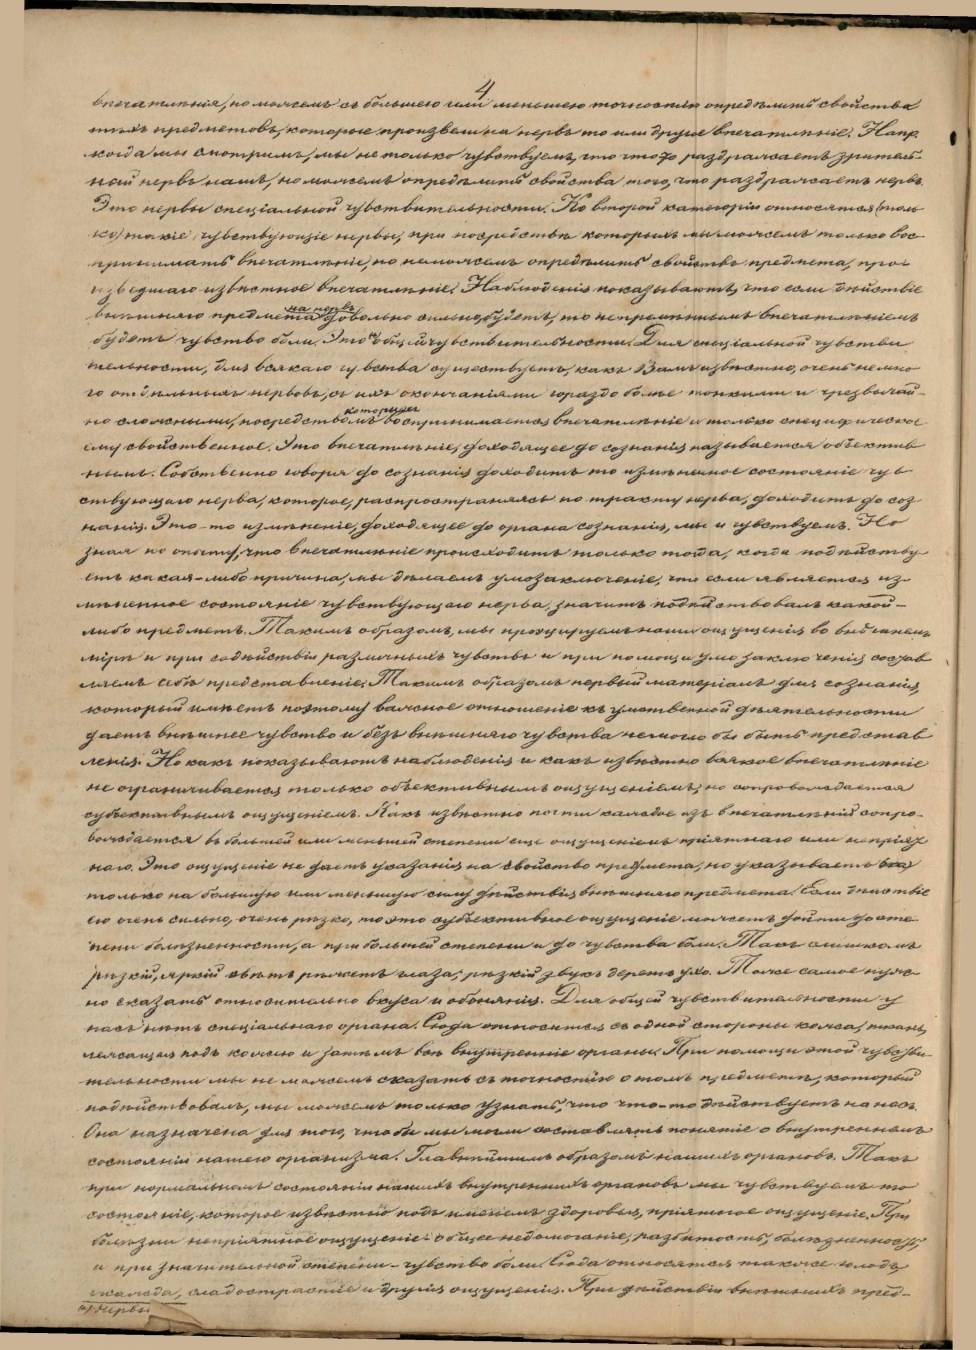 4
впечатлѣнія, но можемъ съ большею или меньшею точностію опредѣлить свойства
тѣхъ предметовъ, которые произвели на нервъ то или другое впечатлѣніе. Напр.
когда мы смотримъ, мы не только чувствуемъ, что что то раздражаетъ зритель-
ный нервъ нашъ, но можемъ опредѣлить свойства того, что раздражаетъ нервъ.
Это нервы спеціальной чувствительности. Ко второй категоріи относятся (толь
ко) такіе чувствующіе нервы, при посредствѣ которыхъ мы можемъ только вос-
принимать впечатлѣніе, но неможемъ опредѣлить свойствъ предмета, про-
изведшаго извѣстное впечатлѣніе. Наблюденія показываютъ, что если дѣйствіе
на нервъ
внѣшняго предмета довольно сильно будетъ, то непремѣннымъ впечатлѣніемъ
будетъ чувство боли. Это общей чувствительности. Для спеціальной чувстви
тельности, для всякаго чувства существуетъ, какъ Вамъ извѣстно, очень немно
го отдѣльныхъ нервовъ, съ ихъ окончаніями гораздо болѣе тонкими и чрезвычай-
которыхъ
но сложными, посредствомъ воспринимается впечатлѣніе и только специфическое
ему свойственное. Это впечатлѣніе, доходящее до сознанія называется объектив
нымъ. Собственно говоря до сознанія доходитъ то измѣненное состояніе чув
ствующаго нерва, которое, распространяясь по тракту нерва, доходитъ до соз
нанія. Это-то измѣненіе, доходящее до органа сознанія, мы и чувствуемъ. Но
зная по опыту, что впечатлѣніе происходитъ только тогда, когда подѣйству
етъ какая-либо причина, мы дѣлаемъ умозаключеніе, что если является из-
мѣненное состояніе чувствующаго нерва, значитъ подѣйствовалъ какой-
либо предметъ. Такимъ образомъ, мы проэцируемъ наши ощущенія во внѣшнемъ
мірѣ и при содѣйствіи различныхъ чувствъ и при помощи умозаключенія состав
ляемъ себѣ представленіе. Такимъ образомъ первый матеріалъ для сознанія,
который имѣетъ поэтому важное отношеніе къ умственной дѣятельности
даетъ внѣшнее чувство и безъ внѣшняго чувства немогло бы быть представ
ленія. Но какъ показываютъ наблюденія и какъ извѣстно всякое впечатлѣніе
не ограничивается только объективнымъ ощущеніемъ, но сопровождается
субъективнымъ ощущеніемъ. Какъ извѣстно почти каждое изъ впечатлѣній сопро-
вождается въ большей или меньшей степени еще ощущеніемъ пріятнаго или непріят
наго. Это ощущеніе не даетъ указанія на свойство предмета, но указываетъ
только на большую или меньшую силу дѣйствія внѣшняго предмета. Если дѣйствіе
его очень сильно, очень рѣзко, то это субъективное ощущеніе можетъ дойти до сте
пени болѣзненности, а при большей степени и до чувства боли. Такъ слишкомъ
рѣзкій, яркій свѣтъ рѣжетъ глаза; рѣзкій звукъ деретъ ухо. Тоже самое нуж-
но сказать относительно вкуса и обонянія. Для общей чувствительности у
насъ нѣтъ спеціальнаго органа. Сюда относится съ одной стороны кожа, ткань,
лежащая подъ кожею и затѣмъ всѣ внутренніе органы. При помощи этой чувстви-
тельности мы не можемъ сказать съ точностію о томъ предметѣ, который
подѣйствовалъ, мы можемъ только узнать, что что-то дѣйствуетъ на насъ.
Она назначена для того, чтобы мы могли составлять понятіе о внутреннемъ
состояніи нашего организма. Главнѣйшимъ образомъ нашихъ органовъ. Такъ
при нормальномъ состояніи нашихъ внутреннихъ органовъ мы чувствуемъ то
состояніе, которое извѣстно подъ именемъ здоровья, пріятное ощущеніе. При
болѣзни непріятное ощущеніе: общее недомоганіе, разбитость, болѣзненность,
а при значительной степени - чувство боли. Сюда относятся также голодъ,
жажда, сладострастіе и другія ощущенія. При дѣйствіи внѣшнихъ пред-
нервы